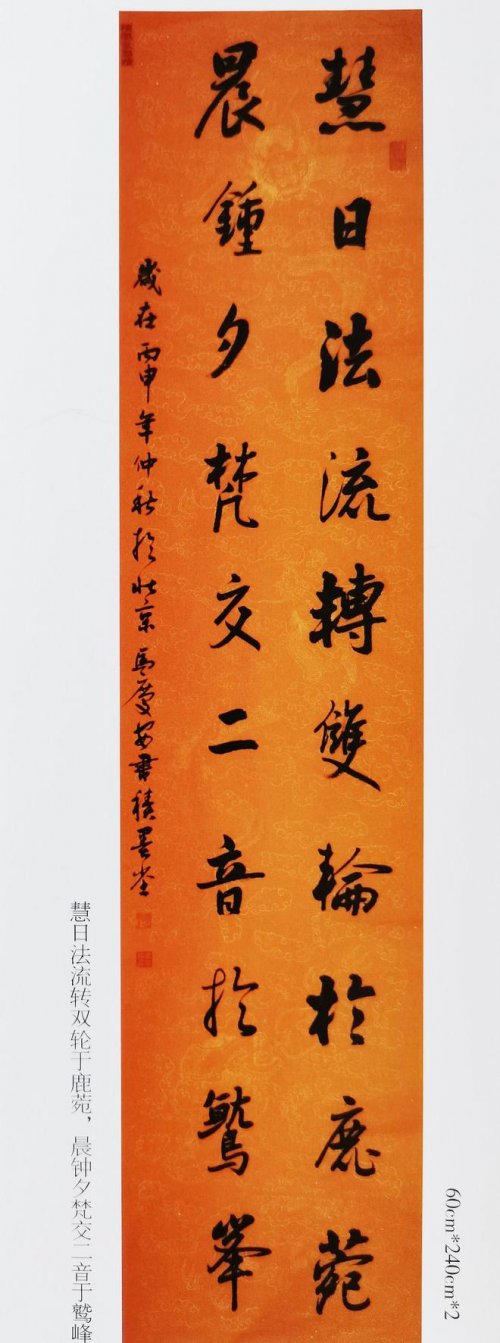 慧日法流轉雙輪於鹿菀
晨鍾夕梵交二音於鷲峯
歲在丙申年仲秋於北京馬慶安書積墨堂
慧日法流转双轮于鹿菀，晨钟夕梵交二音于鹫峰
60cm*240cm*2